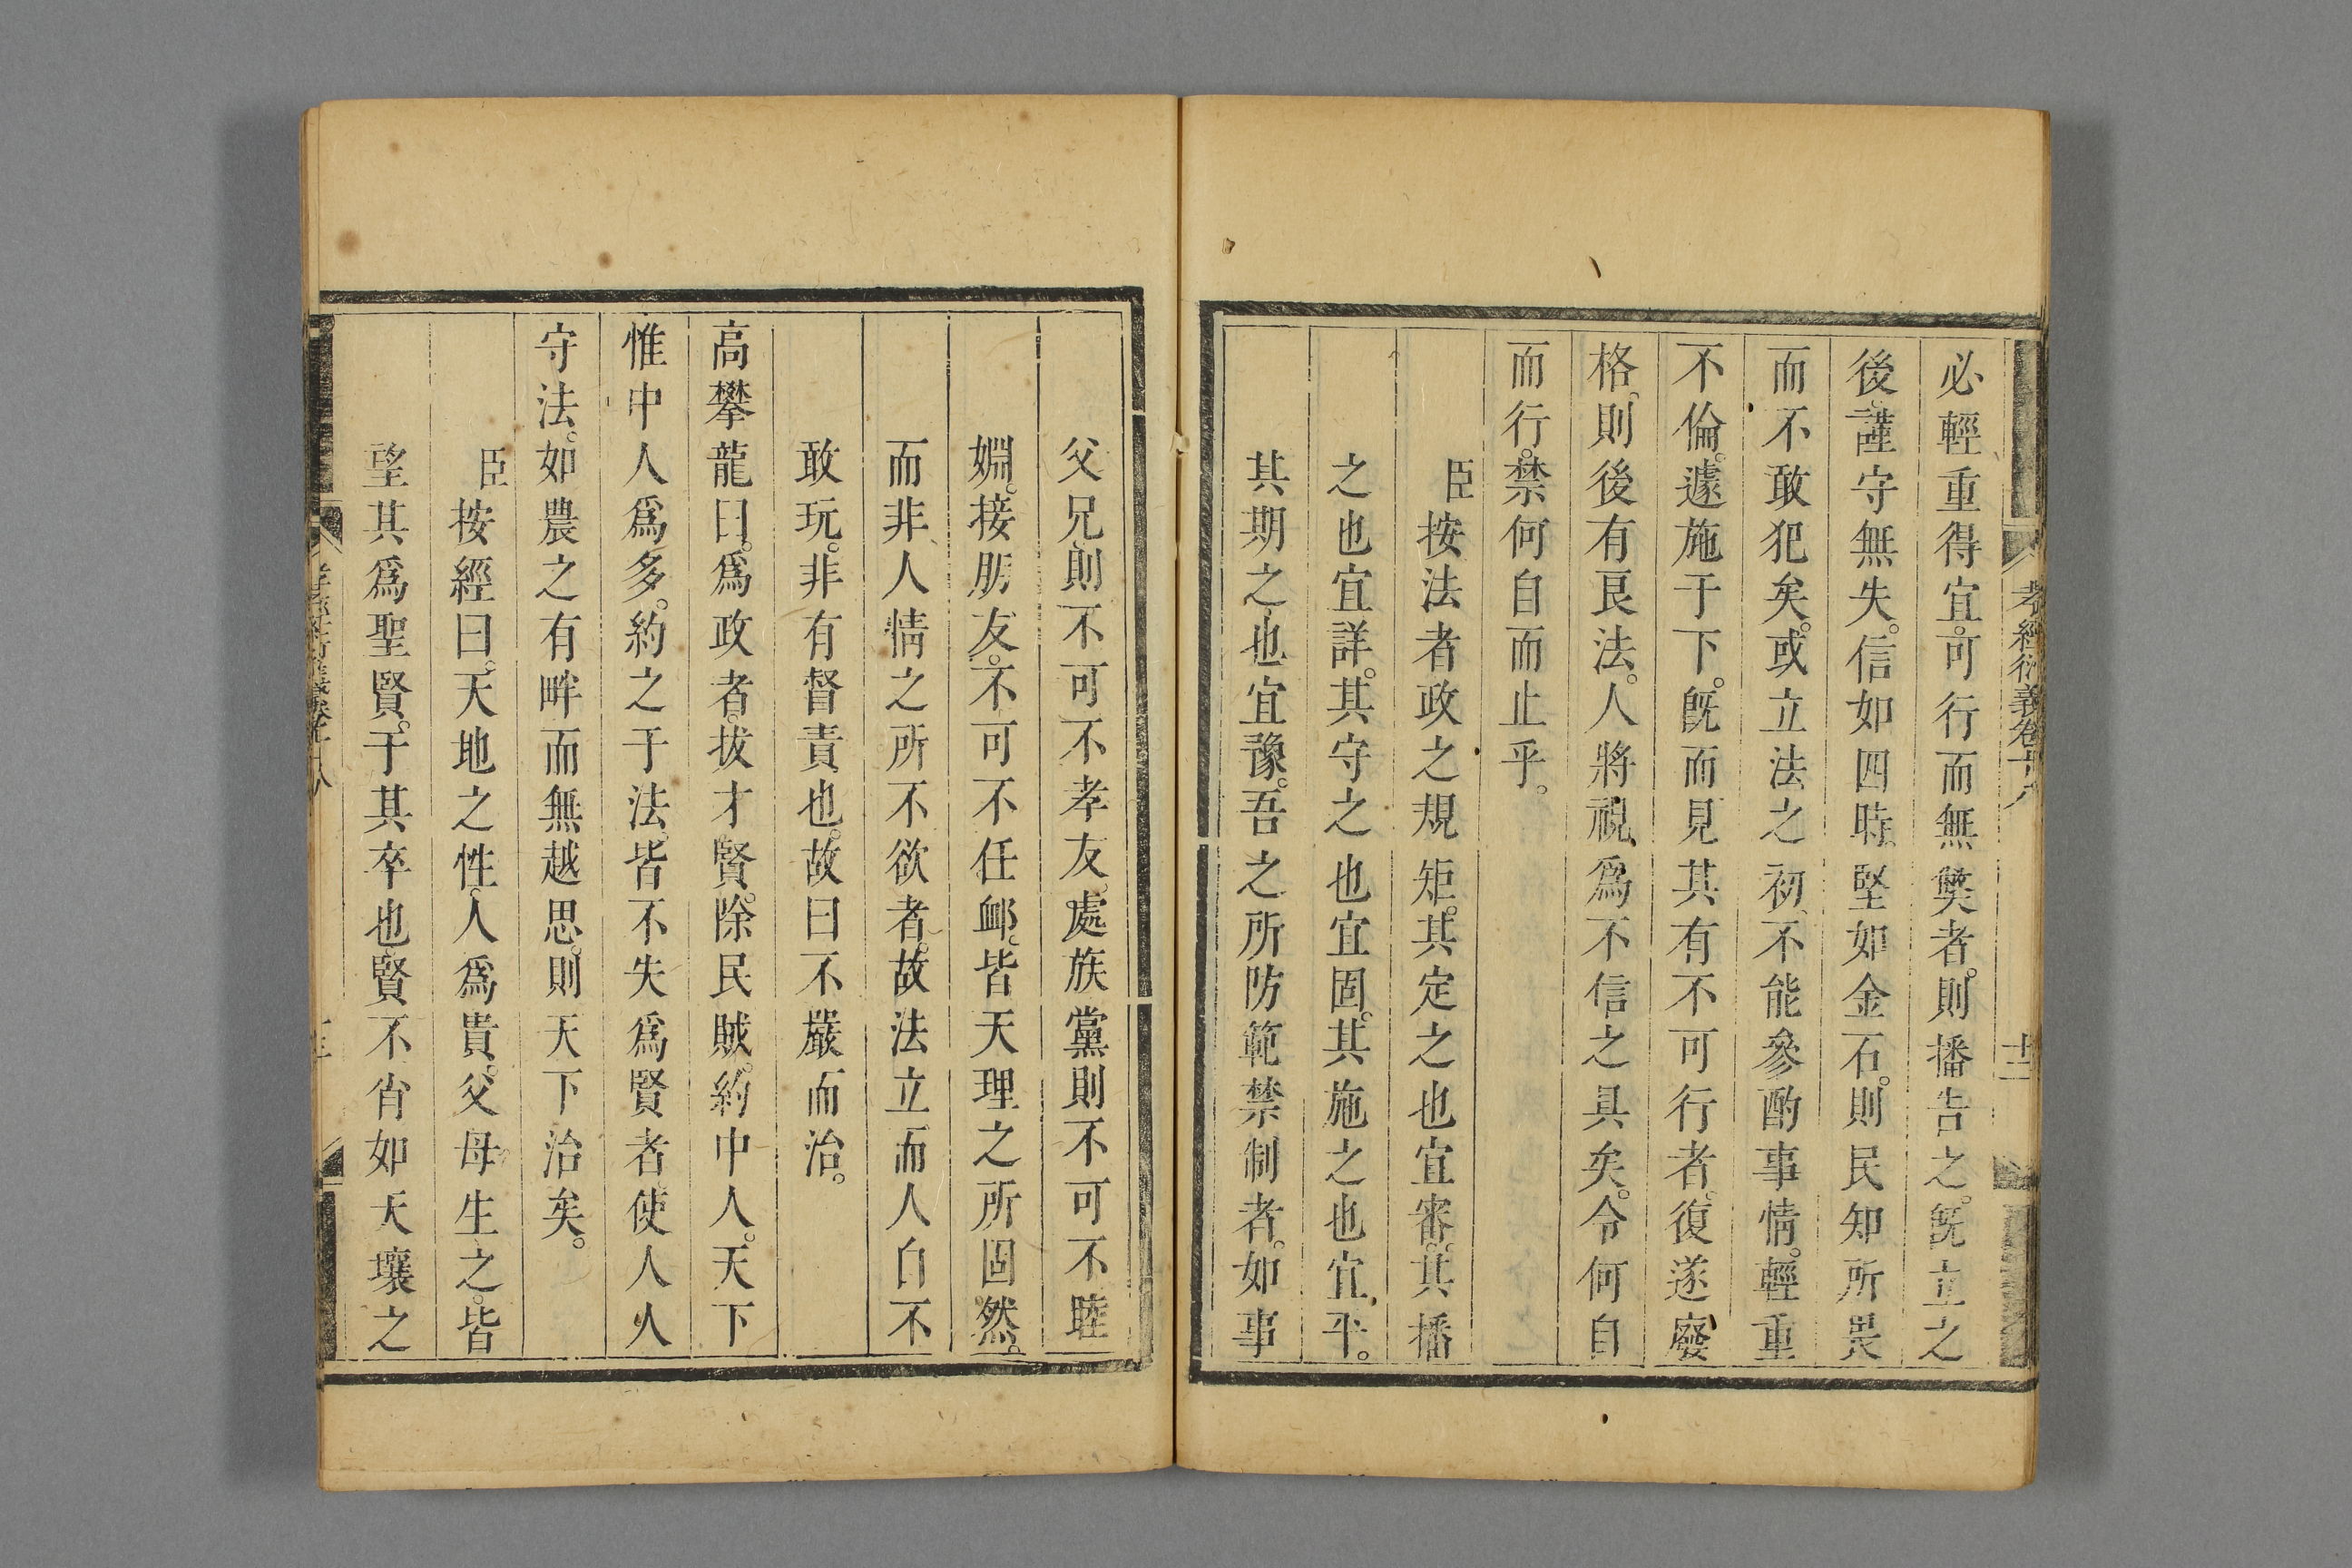 孝經衍義卷十八
十二
必輕重得宜。可行而無獘者。則播告之。旣立之
後。謹守無失。信如四時。堅如金石。則民知所畏
而不敢犯矣。或立法之初、不能參酌事情。輕重
不倫。遽施于下。旣而見其有不可行者。復遂廢
格。則後有良法。人將視爲不信之具矣。令何自
而行。禁何自而止乎。
臣按法者政之規矩。其定之也宜審。其播
之也宜詳。其守之也宜固。其施之也宜平。
其期之也宜豫。吾之所防範禁制者。如事
父兄則不可不孝友。處族黨則不可不睦
婣。接朋友。不可不任卹。皆天理之所固然。
而非人情之所不欲者。故法立而人自不
敢玩。非有督責也。故曰不嚴而治。
高攀龍曰。爲政者。拔才賢。除民賊。約中人。天下
惟中人爲多。約之于法。皆不失爲賢者使人人
守法。如農之有畔而無越思。則天下治矣。
臣按經曰。天地之性。人爲貴。父母生之。皆
望其爲聖賢。于其卒也賢不肖如天壤之
孝經衍義卷十八